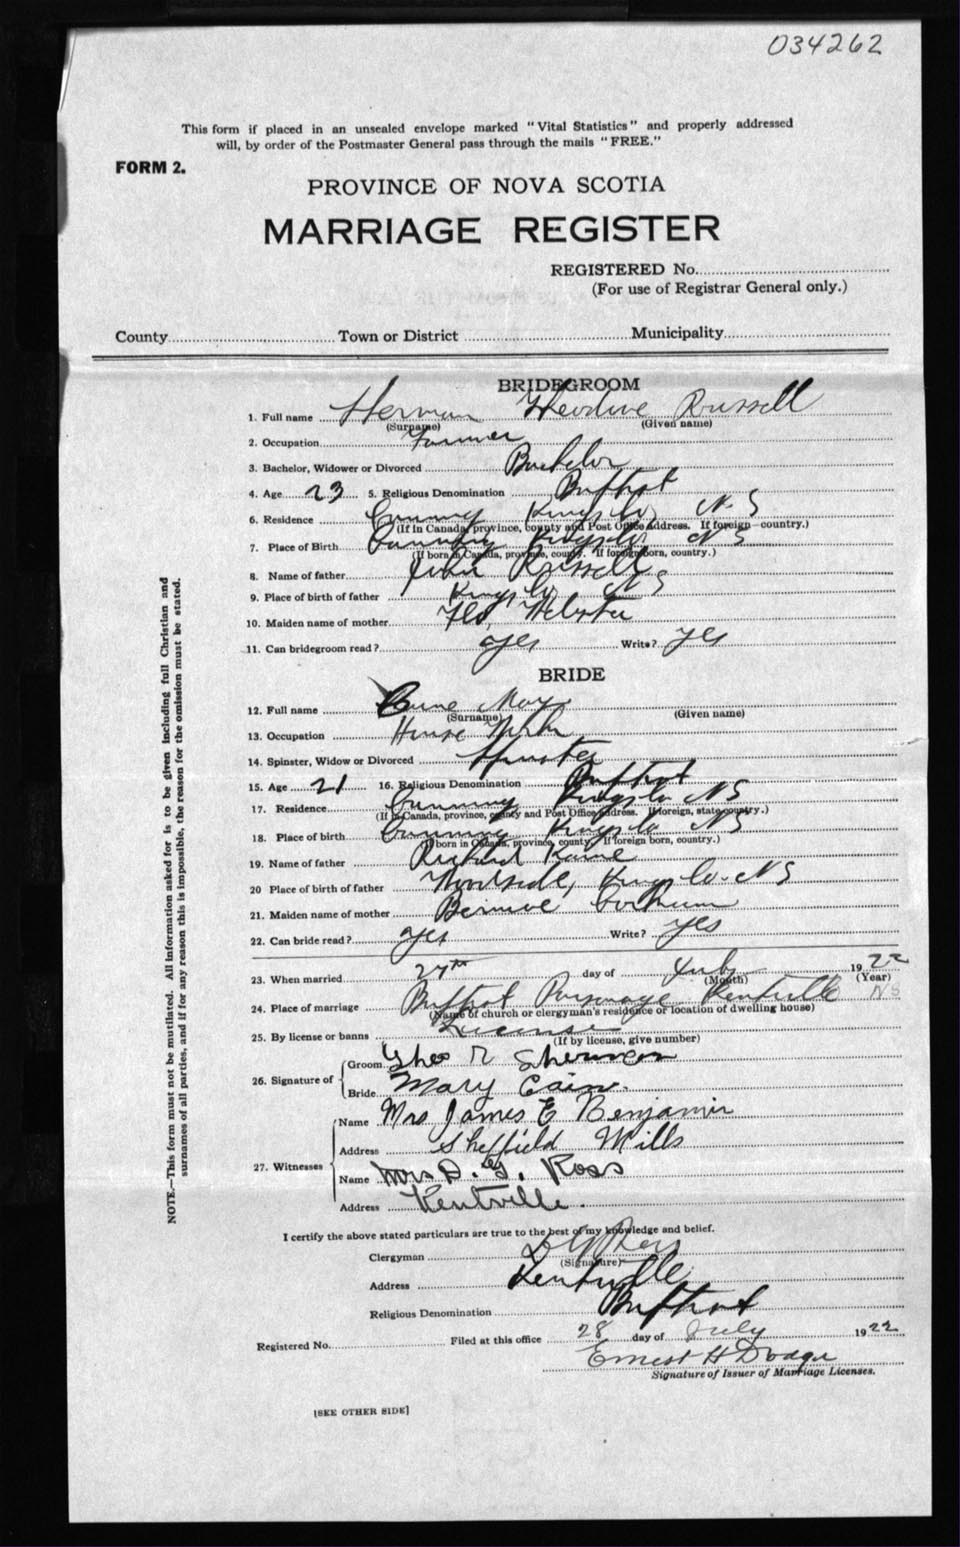 034262
This form if placed in an unsealed envelope marked "Vital Statistics" and properly addressed
will, by order of the Postmaster General pass through the mails "FREE."
FORM 2.
PROVINCE OF NOVA SCOTIA
MARRIAGE REGISTER
REGISTERED No.
(For use of Registrar General only.)
County Town or District Municipality
BRIDEGROOM
1. Full name Herman Theodore Russell
(Surname) (Given name)
2. Occupation Farmer
3. Bachelor, Widower or Divorced Bachelor
4. Age 23 5. Religious Denomination Baptist
6. Residence Kings Co N S
(If in Canada, province, county and Post Office address. If foreign country.)
7. Place of Birth Kings Co N S
(If born in Canada, province, county. If foreign born, country.)
8. Name of father John Russell
9. Place of birth of father Kings Co N S
10. Maiden name of mother Webster
11. Can bridegroom read? yes Write? yes
BRIDE
12. Full name May
(Surname) (Given name)
13. Occupation House
14. Spinster, Widow or Divorced Spinster
15. Age 21 16. Religious Denomination Baptist
17. Residence Kings Co N S
(If in Canada, province, county and Post Office address. If foreign, state country.)
18. Place of birth Kings Co N S
(If born in Canada, province, county. If foreign born, country.)
19. Name of father Richard
20 Place of birth of father Woodside, Kings Co. N S
21. Maiden name of mother
22. Can bride read? yes Write? yes
23. When married 27th day of July 1922
(Month) (Year)
24. Place of marriage Baptist Parsonage Kentville N S
(Name of church or clergyman's residence or location of dwelling house)
25. By license or banns License
(If by license, give number)
26. Signature of Groom Theo R Sherman
Bride Mary Cain.
27. Witnesses Name Mrs James E Benjamin
Address Sheffield Mills
Name Mrs D. G. Ross
Address Kentville.
I certify the above stated particulars are true to the best of my knowledge and belief.
Clergyman D G Ross
(Signature)
Address Kentville
Religious Denomination Baptist
Registered No. Filed at this office 28 day of July 1922
Ernest H Dodge
Signature of Issuer of Marriage Licenses.
[SEE OTHER SIDE]
NOTE.—This form must not be mutilated. All information asked for is to be given including full Christian and
surnames of all parties, and if for any reason this is impossible, the reason for the omission must be stated.